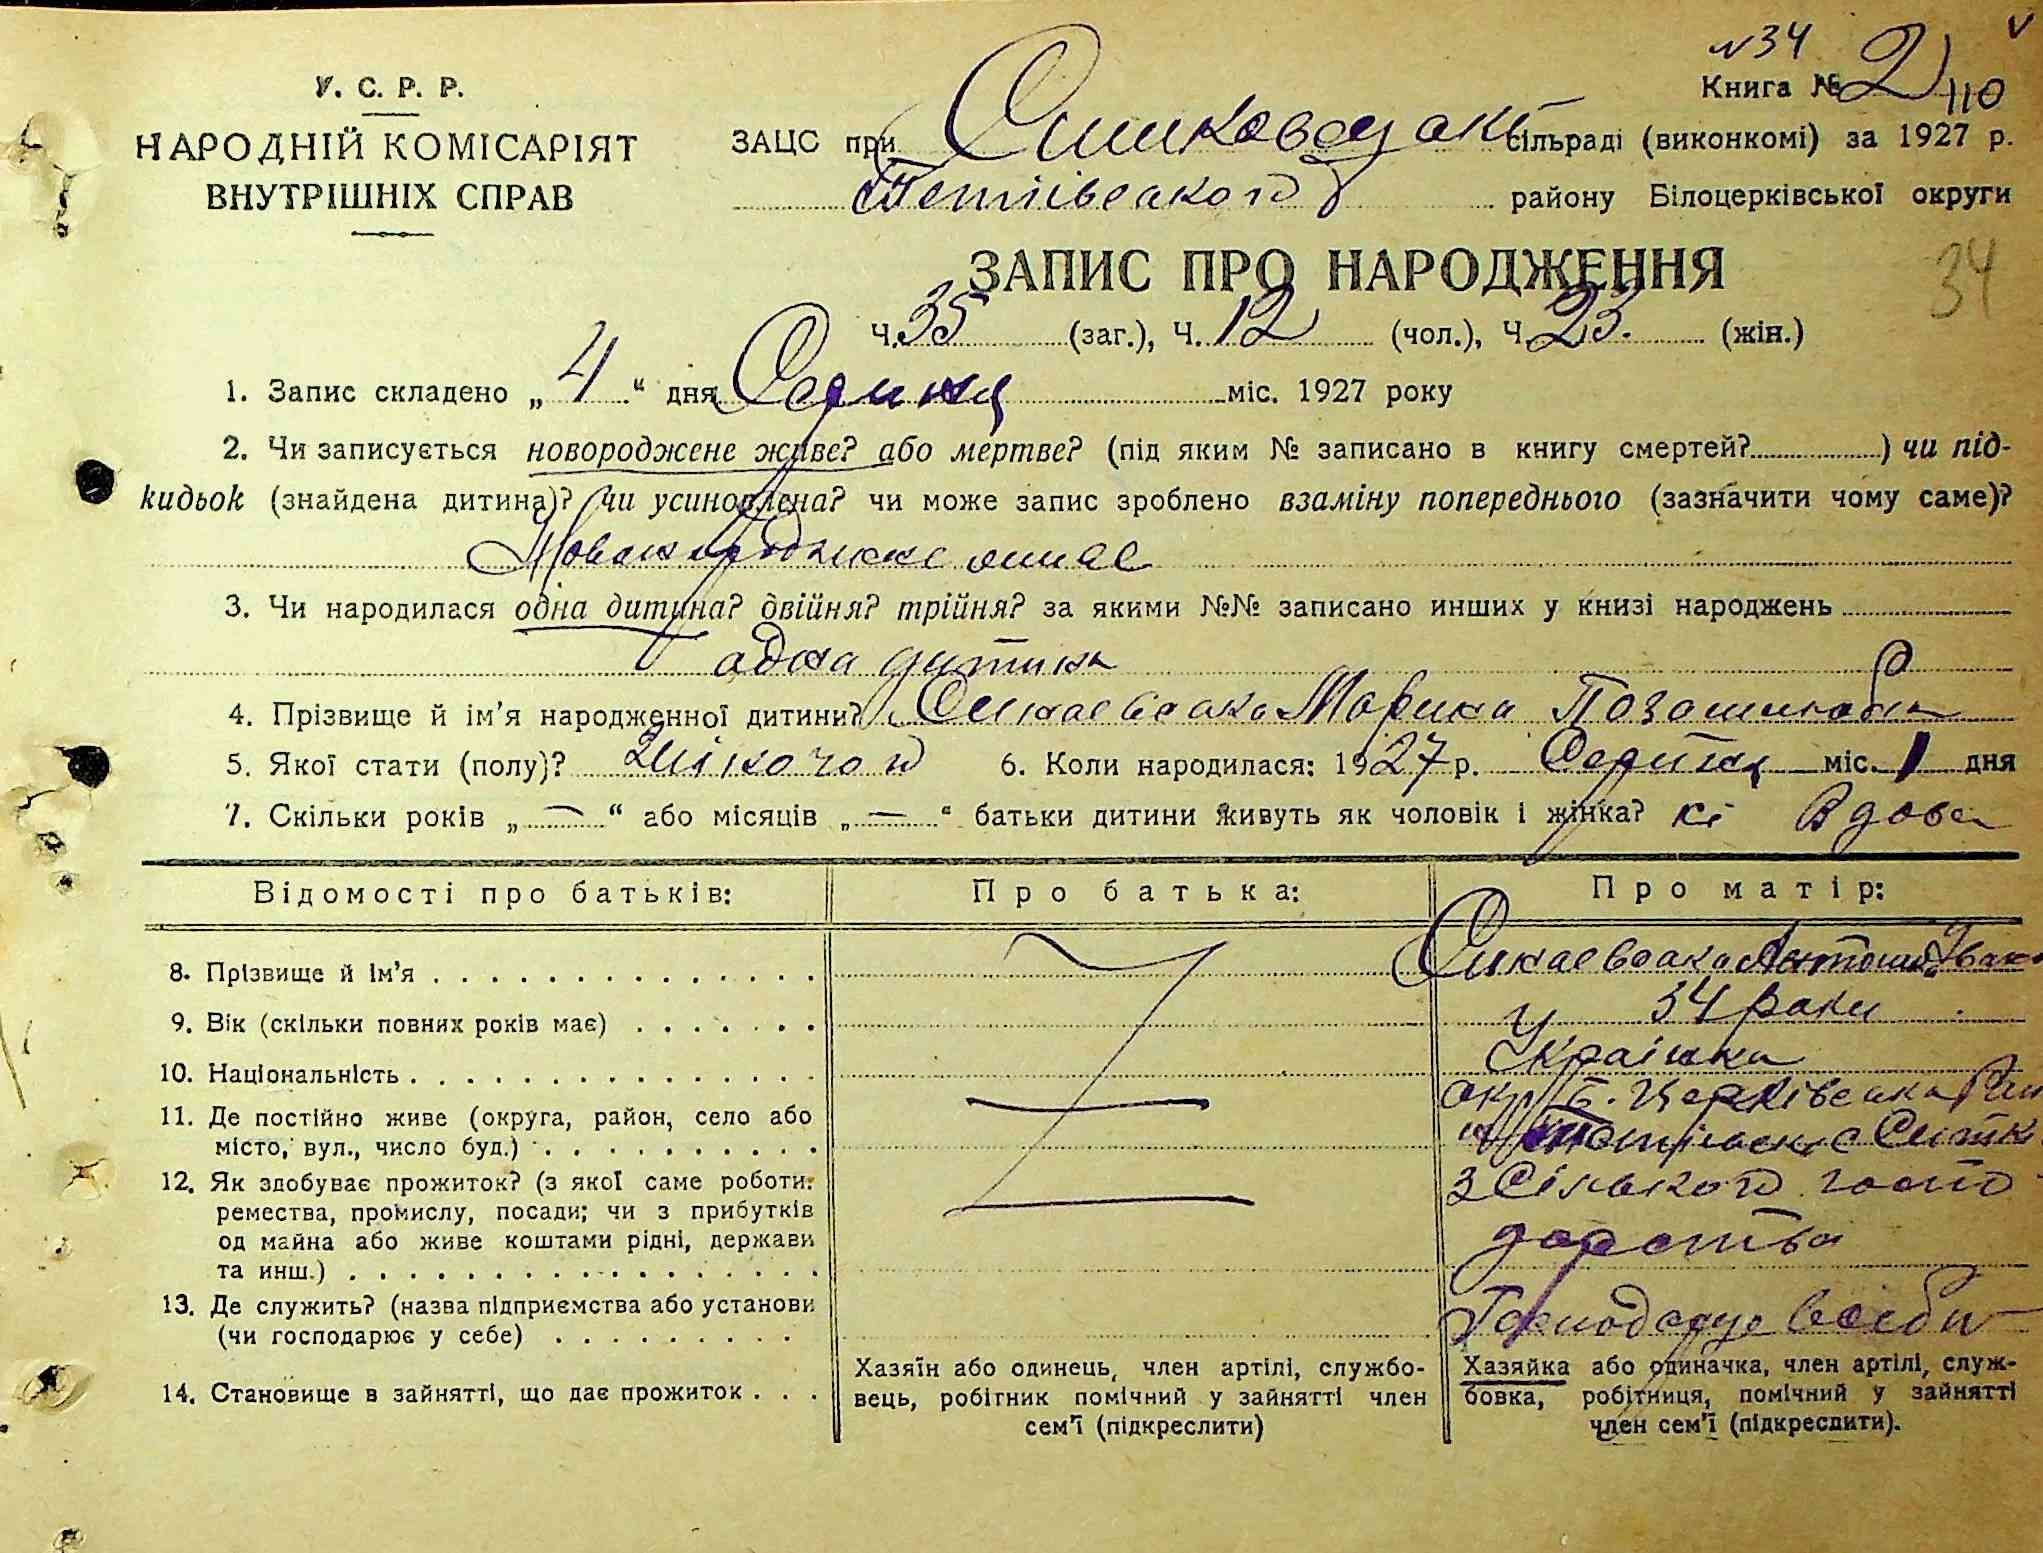 №34
У. С. Р. Р.
Книга № 2 110
НАРОДНІЙ КОМІСАРІЯТ
ВНУТРІШНІХ СПРАВ
ЗАЦС при сільраді (виконкомі) за 1927 р.
району Білоцерківської округи
ЗАПИС ПРО НАРОДЖЕННЯ
34
Ч. 35 (заг.), Ч. 12 (чол.), Ч. 23. (жін.)
1. Запис складено „ 4 “ дня Серпня міс. 1927 року
2. Чи записується новороджене живе? або мертве? (під яким № записано в книгу смертей?) чи під-
кидьок (знайдена дитина)? чи усиновлена? чи може запис зроблено взаміну попереднього (зазначити чому саме)?
3. Чи народилася одна дитина? двійня? трійня? за якими №№ записано инших у книзі народжень
одна дитина
4. Прізвище й ім’я народженної дитини? Марина
5. Якої стати (полу)? жіночого 6. Коли народилася: 1927 р. Серпня міс. 1 дня
7. Скільки років „ — “ або місяців „ — “ батьки дитини живуть як чоловік і жінка? ні Вдова
Відомості про батьків:
Про батька:
Про матір:
8. Прізвище й ім’я
9. Вік (скільки повних років має) 34 роки
10. Національність Українка
11. Де постійно живе (округа, район, село або
місто, вул., число буд.) окр Б. Церківська
12. Як здобуває прожиток? (з якої саме роботи:
ремества, промислу, посади; чи з прибутків
од майна або живе коштами рідні, держави
та инш.)
з Сільського госпо
дарства
13. Де служить? (назва підприємства або установи
(чи господарює у себе)
Господарує в себе
14. Становище в зайнятті, що дає прожиток
Хазяїн або одинець, член артілі, службо-
вець, робітник помічний у зайнятті член
сем’ї (підкреслити)
Хазяйка або одиначка, член артілі, служ-
бовка, робітниця, помічний у зайнятті
член сем’ї (підкреслити).